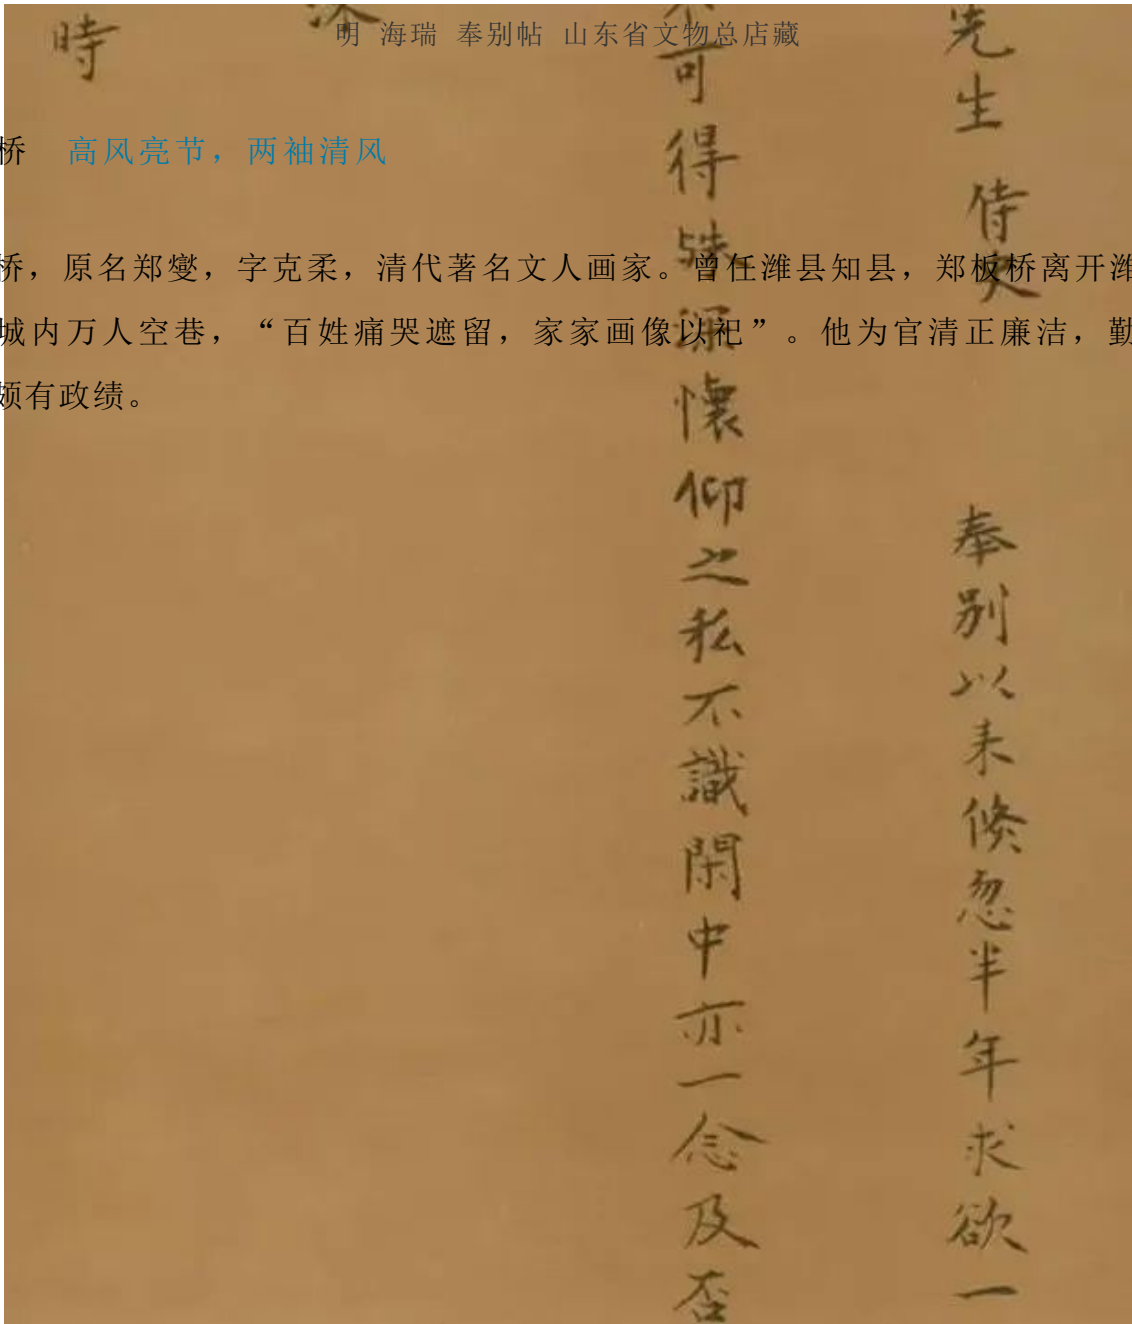 明 海瑞 奉别帖 山东省文物总店藏
桥 高风亮节，两袖清风
桥，原名郑燮，字克柔，清代著名文人画家。曾任潍县知县，郑板桥离开潍
城内万人空巷，“百姓痛哭遮留，家家画像以祀”。他为官清正廉洁，勤
颇有政绩。
先生 侍史
奉别以来倏忽半年求欲一
可得殊深懷仰之私不識閑中亦一念及否
時